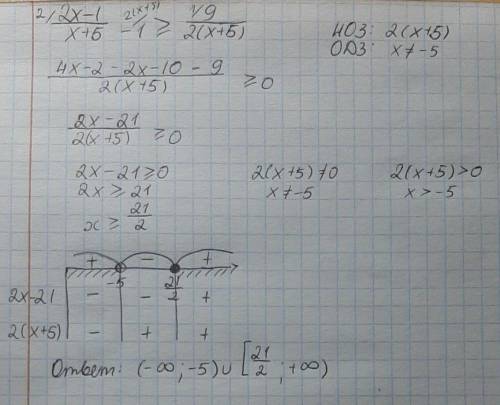 2/ 2x-1 / x+5 - 2(x+5)/ 1 ≥ 1/ 9 / 2(x+5)
НОЗ: 2(x+5)
ОДЗ: x≠-5
4x-2-2x-10-9 / 2(x+5) ≥0
2x-21 / 2(x+5) ≥0
2x-21≥0 2(x+5)≠0 2(x+5)>0
2x≥21 x≠-5 x>-5
x≥ 21/2
+ - +
-5 21/2
2x-21 - - +
2(x+5) - + +
Ответ: (-∞;-5)∪[21/2;+∞)